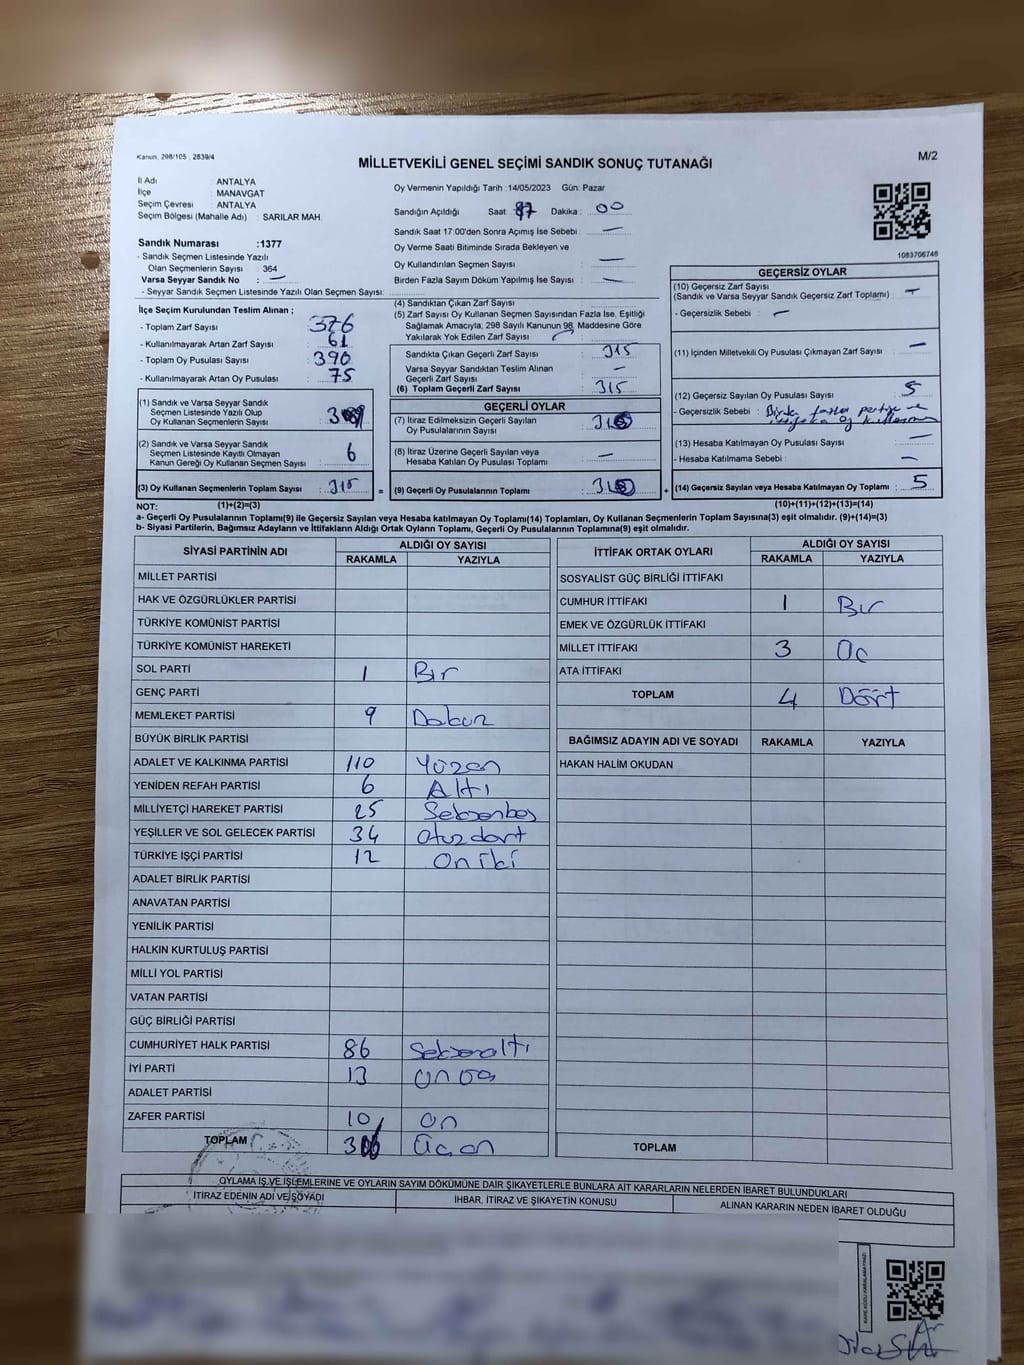 Kanun, 298/105 : 2839/4
MİLLETVEKİLİ GENEL SEÇİMİ SANDIK SONUÇ TUTANAĞI
M/2
İl Adı ANTALYA
İlçe MANAVGAT
Seçim Çevresi : ANTALYA
Seçim Bölgesi (Mahalle Adı) : SARILAR MAH.
Sandık Numarası :1377
- Sandık Seçmen Listesinde Yazılı
Olan Seçmenlerin Sayısı : 364
Varsa Seyyar Sandık No : —
- Seyyar Sandık Seçmen Listesinde Yazılı Olan Seçmen Sayısı:
Oy Vermenin Yapıldığı Tarih :14/05/2023 Gün: Pazar
Sandığın Açıldığı Saat : Dakika : 00
Sandık Saat 17:00'den Sonra Açımış İse Sebebi : —
Oy Verme Saati Bitiminde Sırada Bekleyen ve
Oy Kullandırılan Seçmen Sayısı : —
Birden Fazla Sayım Döküm Yapılmış İse Sayısı : —
1083706746
İlçe Seçim Kurulundan Teslim Alınan ;
- Toplam Zarf Sayısı : 376
- Kullanılmayarak Artan Zarf Sayısı : 61
- Toplam Oy Pusulası Sayısı : 390
- Kullanılmayarak Artan Oy Pusulası : 75
(1) Sandık ve Varsa Seyyar Sandık
Seçmen Listesinde Yazılı Olup
Oy Kullanan Seçmenlerin Sayısı :
(2) Sandık ve Varsa Seyyar Sandık
Seçmen Listesinde Kayıtlı Olmayan
Kanun Gereği Oy Kullanan Seçmen Sayısı : 6
(3) Oy Kullanan Seçmenlerin Toplam Sayısı : 315 =
(4) Sandıktan Çıkan Zarf Sayısı :
(5) Zarf Sayısı Oy Kullanan Seçmen Sayısından Fazla İse, Eşitliği
Sağlamak Amacıyla; 298 Sayılı Kanunun 98. Maddesine Göre
Yakılarak Yok Edilen Zarf Sayısı :
Sandıkta Çıkan Geçerli Zarf Sayısı : 315
Varsa Seyyar Sandıktan Teslim Alınan
Geçerli Zarf Sayısı : —
(6) Toplam Geçerli Zarf Sayısı : 315
GEÇERLİ OYLAR
(7) İtiraz Edilmeksizin Geçerli Sayılan
Oy Pusulalarının Sayısı :
(8) İtiraz Üzerine Geçerli Sayılan veya
Hesaba Katılan Oy Pusulası Toplamı : —
(9) Geçerli Oy Pusulalarının Toplamı : +
GEÇERSİZ OYLAR
(10) Geçersiz Zarf Sayısı
(Sandık ve Varsa Seyyar Sandık Geçersiz Zarf Toplamı) : —
- Geçersizlik Sebebi : —
(11) İçinden Milletvekili Oy Pusulası Çıkmayan Zarf Sayısı : —
(12) Geçersiz Sayılan Oy Pusulası Sayısı : 5
- Geçersizlik Sebebi : Birden fazla partiye ve
ittifaka oy kullanımı
(13) Hesaba Katılmayan Oy Pusulası Sayısı : —
- Hesaba Katılmama Sebebi : —
(14) Geçersiz Sayılan veya Hesaba Katılmayan Oy Toplamı : 5
NOT: (1)+(2)=(3) (10)+(11)+(12)+(13)=(14)
a- Geçerli Oy Pusulalarının Toplamı(9) ile Geçersiz Sayılan veya Hesaba katılmayan Oy Toplamı(14) Toplamları, Oy Kullanan Seçmenlerin Toplam Sayısına(3) eşit olmalıdır. (9)+(14)=(3)
b- Siyasi Partilerin, Bağımsız Adayların ve İttifakların Aldığı Ortak Oyların Toplamı, Geçerli Oy Pusulalarının Toplamına(9) eşit olmalıdır.
SİYASİ PARTİNİN ADI ALDIĞI OY SAYISI
RAKAMLA YAZIYLA
MİLLET PARTİSİ
HAK VE ÖZGÜRLÜKLER PARTİSİ
TÜRKİYE KOMÜNİST PARTİSİ
TÜRKİYE KOMÜNİST HAREKETİ
SOL PARTİ 1 Bir
GENÇ PARTİ
MEMLEKET PARTİSİ 9 Dokuz
BÜYÜK BİRLİK PARTİSİ
ADALET VE KALKINMA PARTİSİ 110 Yüzon
YENİDEN REFAH PARTİSİ 6 Altı
MİLLİYETÇİ HAREKET PARTİSİ 25 Seksenbeş
YEŞİLLER VE SOL GELECEK PARTİSİ 34 otuzdört
TÜRKİYE İŞÇİ PARTİSİ 12 on iki
ADALET BİRLİK PARTİSİ
ANAVATAN PARTİSİ
YENİLİK PARTİSİ
HALKIN KURTULUŞ PARTİSİ
MİLLİ YOL PARTİSİ
VATAN PARTİSİ
GÜÇ BİRLİĞİ PARTİSİ
CUMHURİYET HALK PARTİSİ 86 Seksenaltı
İYİ PARTİ 13 onüç
ADALET PARTİSİ
ZAFER PARTİSİ 10 on
TOPLAM Üçon
İTTİFAK ORTAK OYLARI ALDIĞI OY SAYISI
RAKAMLA YAZIYLA
SOSYALİST GÜÇ BİRLİĞİ İTTİFAKI
CUMHUR İTTİFAKI 1 Bır
EMEK VE ÖZGÜRLÜK İTTİFAKI
MİLLET İTTİFAKI 3 Üç
ATA İTTİFAKI
TOPLAM 4 Dört
BAĞIMSIZ ADAYIN ADI VE SOYADI RAKAMLA YAZIYLA
HAKAN HALİM OKUDAN
TOPLAM
OYLAMA İŞ VE İŞLEMLERİNE VE OYLARIN SAYIM DÖKÜMÜNE DAİR ŞİKAYETLERLE BUNLARA AİT KARARLARIN NELERDEN İBARET BULUNDUKLARI
İTİRAZ EDENİN ADI VE SOYADI İHBAR, İTİRAZ VE ŞİKAYETİN KONUSU ALINAN KARARIN NEDEN İBARET OLDUĞU